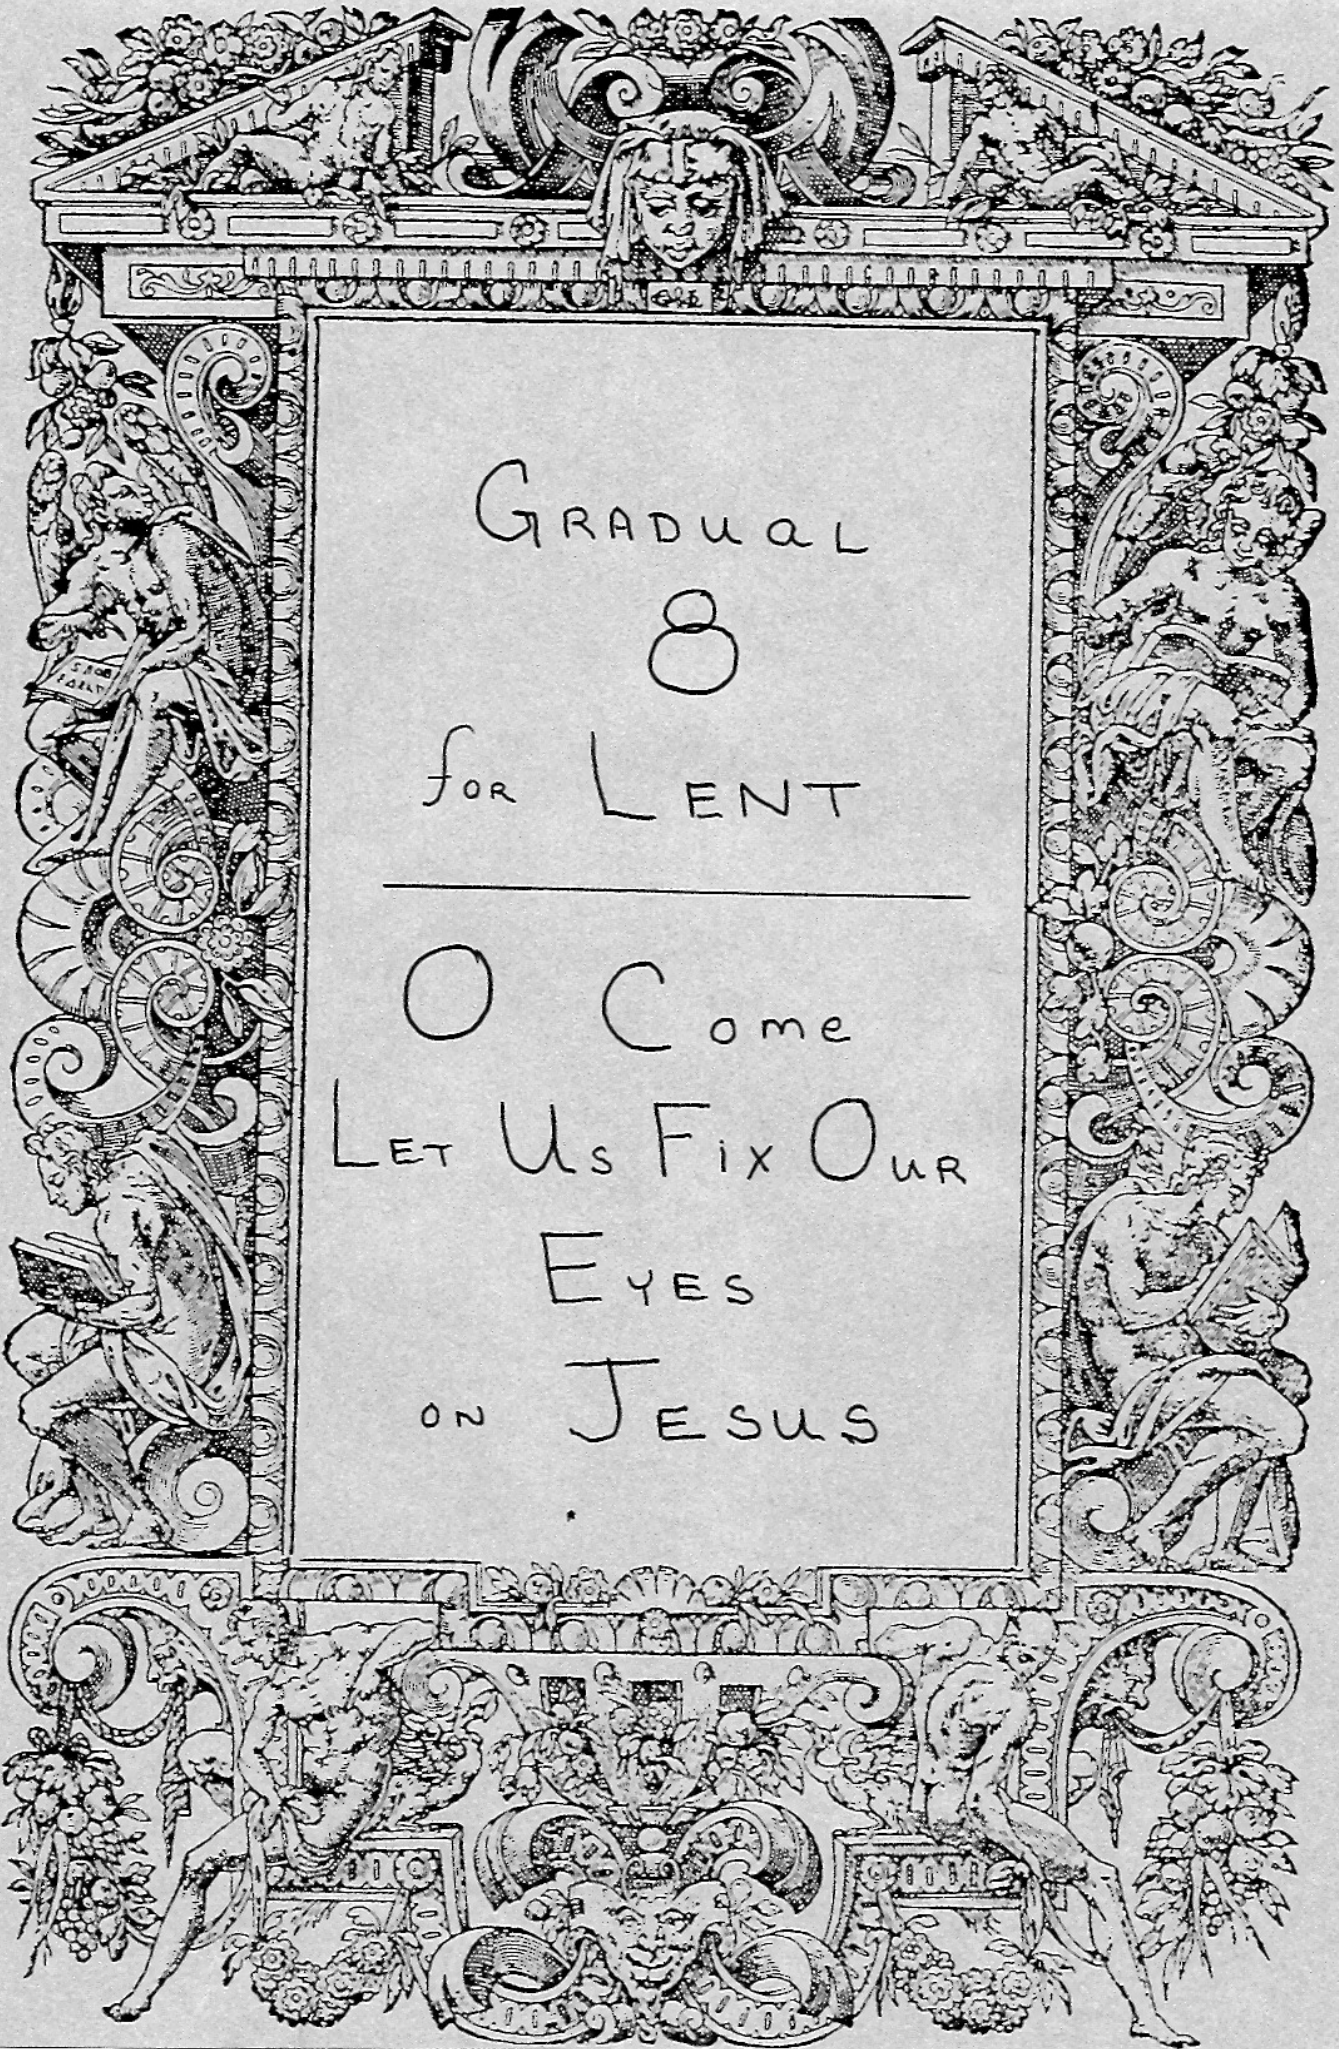 GRADUAL
8
for LENT
O Come
LET US FIX OUR
EYES
ON JESUS